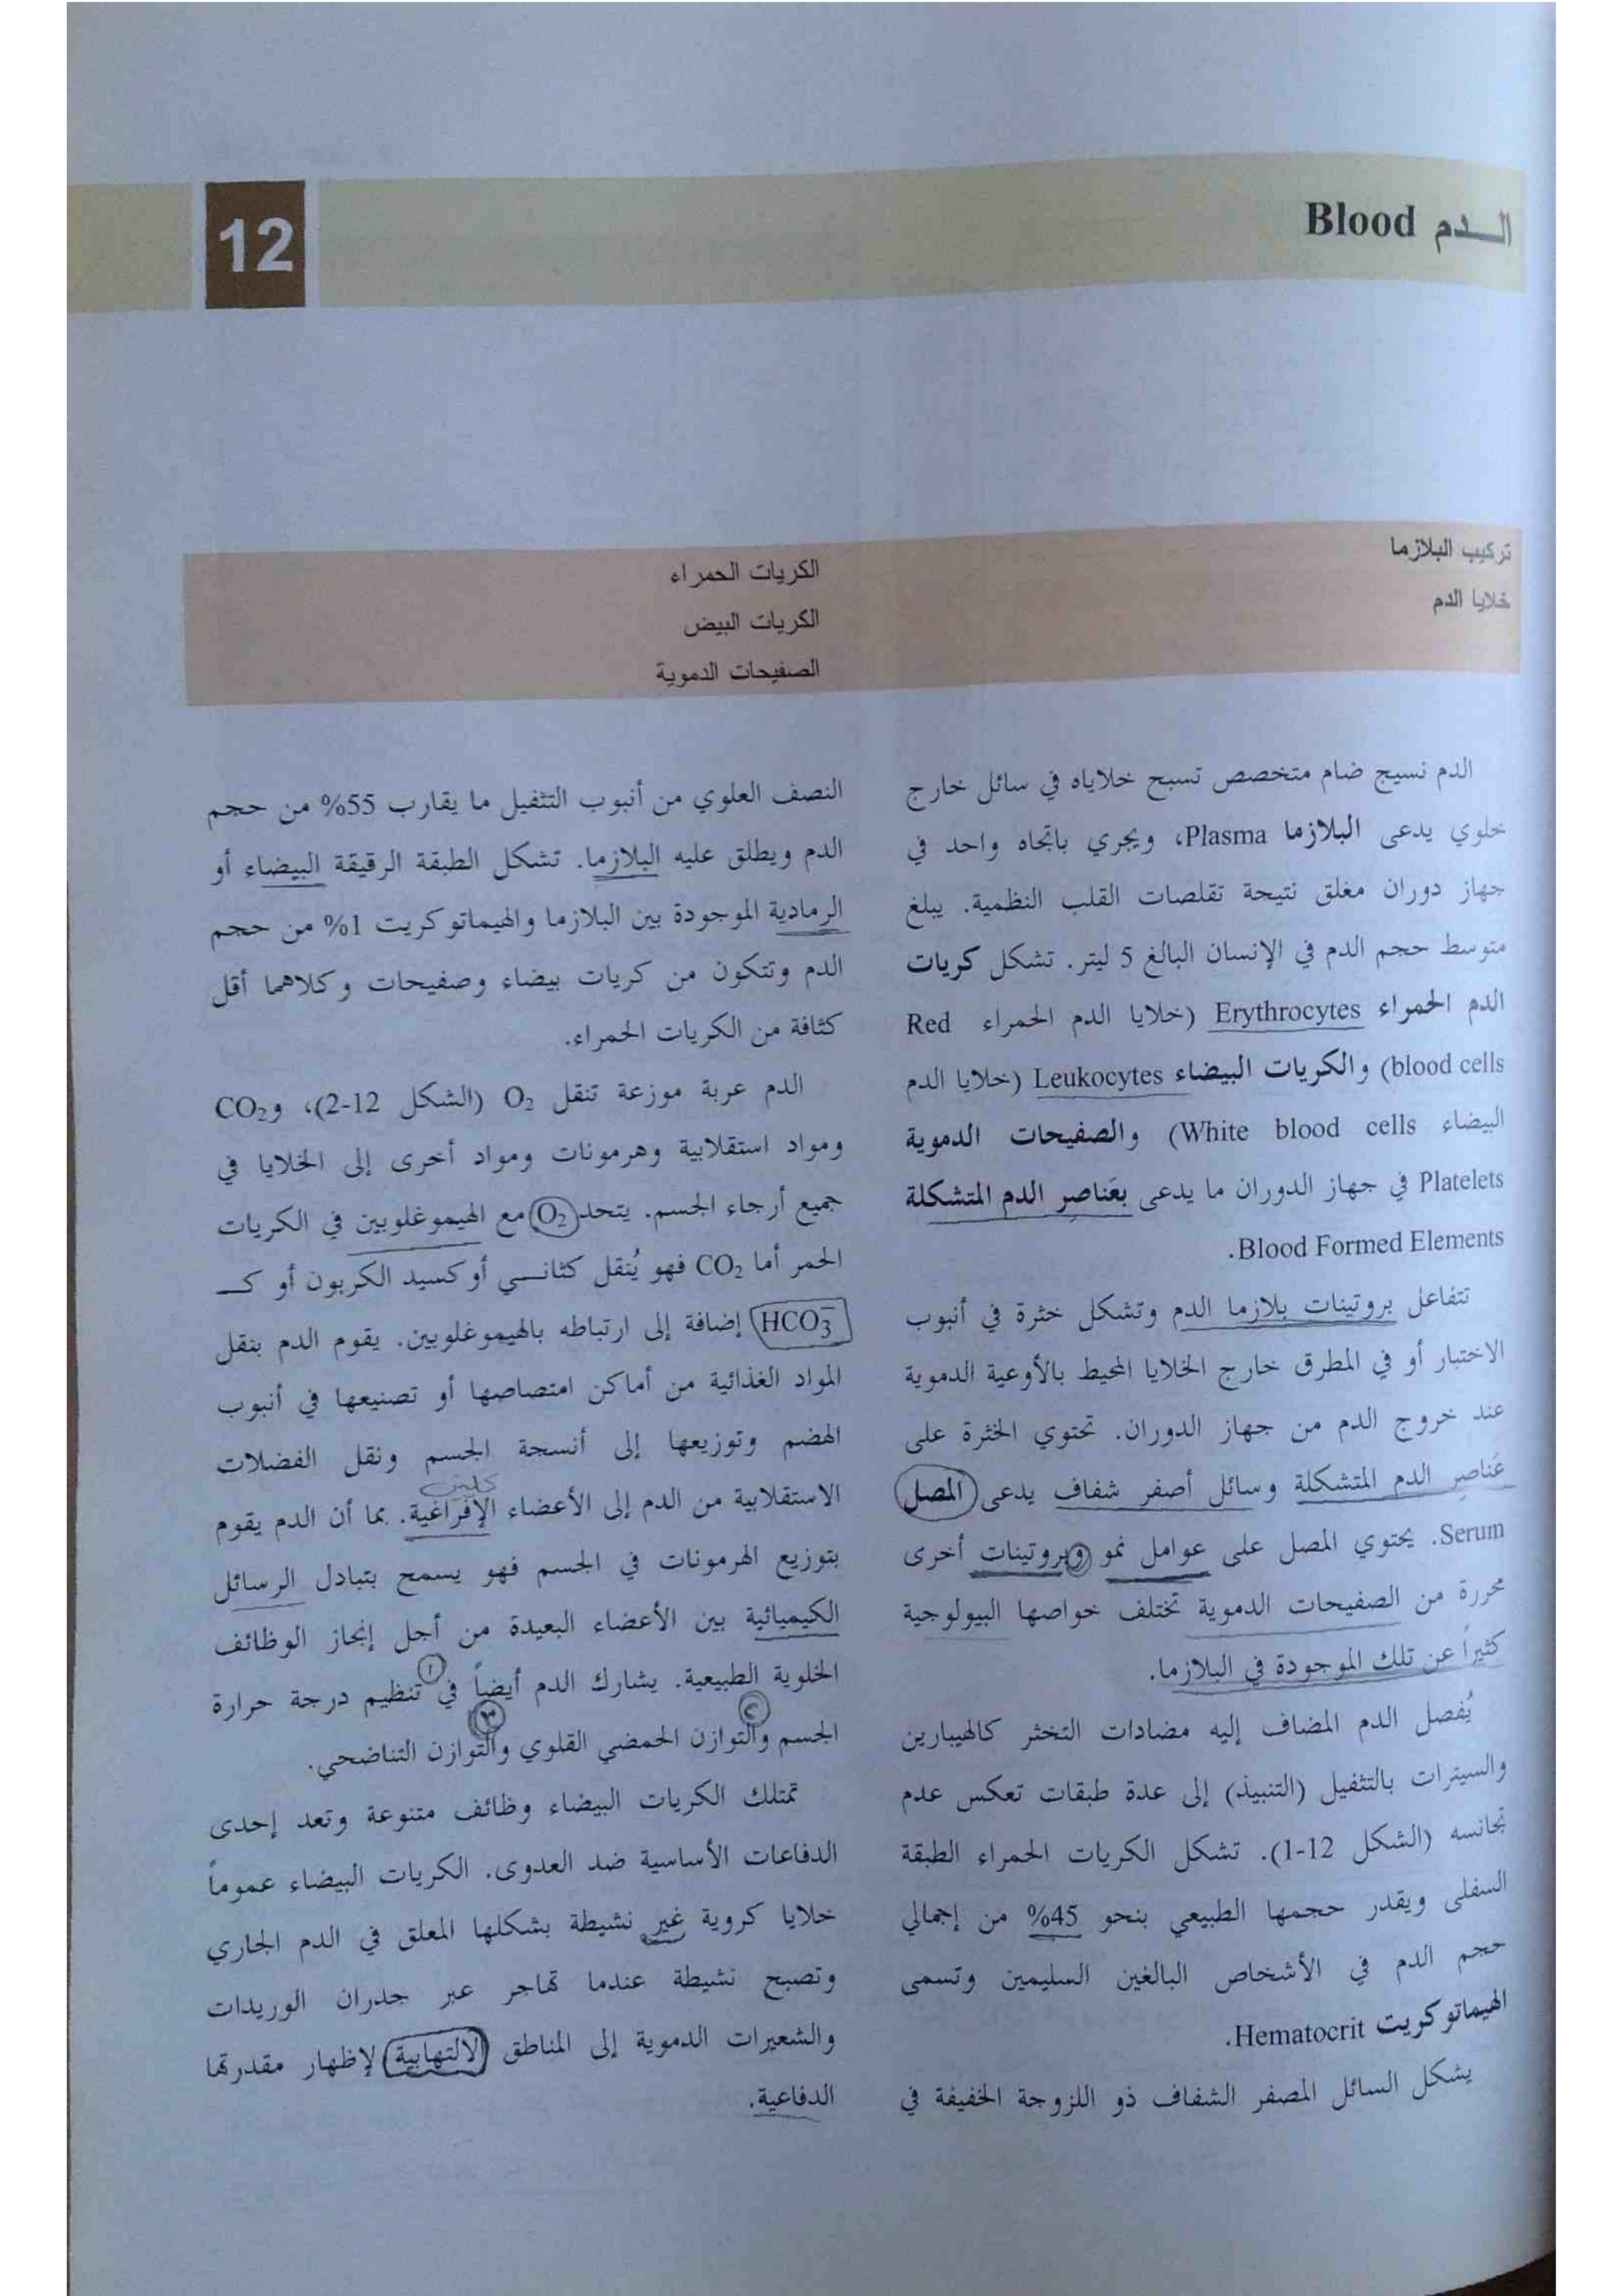 الـــدم Blood
12
تركيب البلازما
خلايا الدم
الكريات الحمراء
الكريات البيض
الصفيحات الدموية
الدم نسيج ضام متخصص تسبح خلاياه في سائل خارج
خلوي يدعى البلازما Plasma، ويجري باتجاه واحد في
جهاز دوران مغلق نتيجة تقلصات القلب النظمية. يبلغ
متوسط حجم الدم في الإنسان البالغ 5 ليتر. تشكل كريات
الدم الحمراء Erythrocytes (خلايا الدم الحمراء Red
blood cells) والكريات البيضاء Leukocytes (خلايا الدم
البيضاء White blood cells) والصفيحات الدموية
Platelets في جهاز الدوران ما يدعى بعَناصِر الدم المتشكلة
Blood Formed Elements.
تتفاعل بروتينات بلازما الدم وتشكل خثرة في أنبوب
الاختبار أو في المطرق خارج الخلايا المحيط بالأوعية الدموية
عند خروج الدم من جهاز الدوران. تحتوي الخثرة على
عَناصِر الدم المتشكلة وسائل أصفر شفاف يدعى المصل
Serum. يحتوي المصل على عوامل نمو وبروتينات أخرى
محررة من الصفيحات الدموية تختلف خواصها البيولوجية
كثيراً عن تلك الموجودة في البلازما.
يُفصل الدم المضاف إليه مضادات التخثر كالهيبارين
والسيترات بالتثفيل (التنبيذ) إلى عدة طبقات تعكس عدم
تجانسه (الشكل 12-1). تشكل الكريات الحمراء الطبقة
السفلى ويقدر حجمها الطبيعي بنحو 45% من إجمالي
حجم الدم في الأشخاص البالغين السليمين وتسمى
الهيماتوكريت Hematocrit.
يشكل السائل المصفر الشفاف ذو اللزوجة الخفيفة في
النصف العلوي من أنبوب التثفيل ما يقارب 55% من حجم
الدم ويطلق عليه البلازما. تشكل الطبقة الرقيقة البيضاء أو
الرمادية الموجودة بين البلازما والهيماتوكريت 1% من حجم
الدم وتتكون من كريات بيضاء وصفيحات وكلاهما أقل
كثافة من الكريات الحمراء.
الدم عربة موزعة تنقل O₂ (الشكل 12-2)، وCO₂
ومواد استقلابية وهرمونات ومواد أخرى إلى الخلايا في
جميع أرجاء الجسم. يتحد O₂ مع الهيموغلوبين في الكريات
الحمر أما CO₂ فهو يُنقل كثانـــي أوكسيد الكربون أو كـــ
HCO₃⁻ إضافة إلى ارتباطه بالهيموغلوبين. يقوم الدم بنقل
المواد الغذائية من أماكن امتصاصها أو تصنيعها في أنبوب
الهضم وتوزيعها إلى أنسجة الجسم ونقل الفضلات
الاستقلابية من الدم إلى الأعضاء الإفراغية. بما أن الدم يقوم
بتوزيع الهرمونات في الجسم فهو يسمح بتبادل الرسائل
الكيميائية بين الأعضاء البعيدة من أجل إنجاز الوظائف
الخلوية الطبيعية. يشارك الدم أيضاً في تنظيم درجة حرارة
الجسم والتوازن الحمضي القلوي والتوازن التناضحي.
تمتلك الكريات البيضاء وظائف متنوعة وتعد إحدى
الدفاعات الأساسية ضد العدوى. الكريات البيضاء عموماً
خلايا كروية غير نشيطة بشكلها المعلق في الدم الجاري
وتصبح نشيطة عندما تهاجر عبر جدران الوريدات
والشعيرات الدموية إلى المناطق الالتهابية لإظهار مقدرتها
الدفاعية.